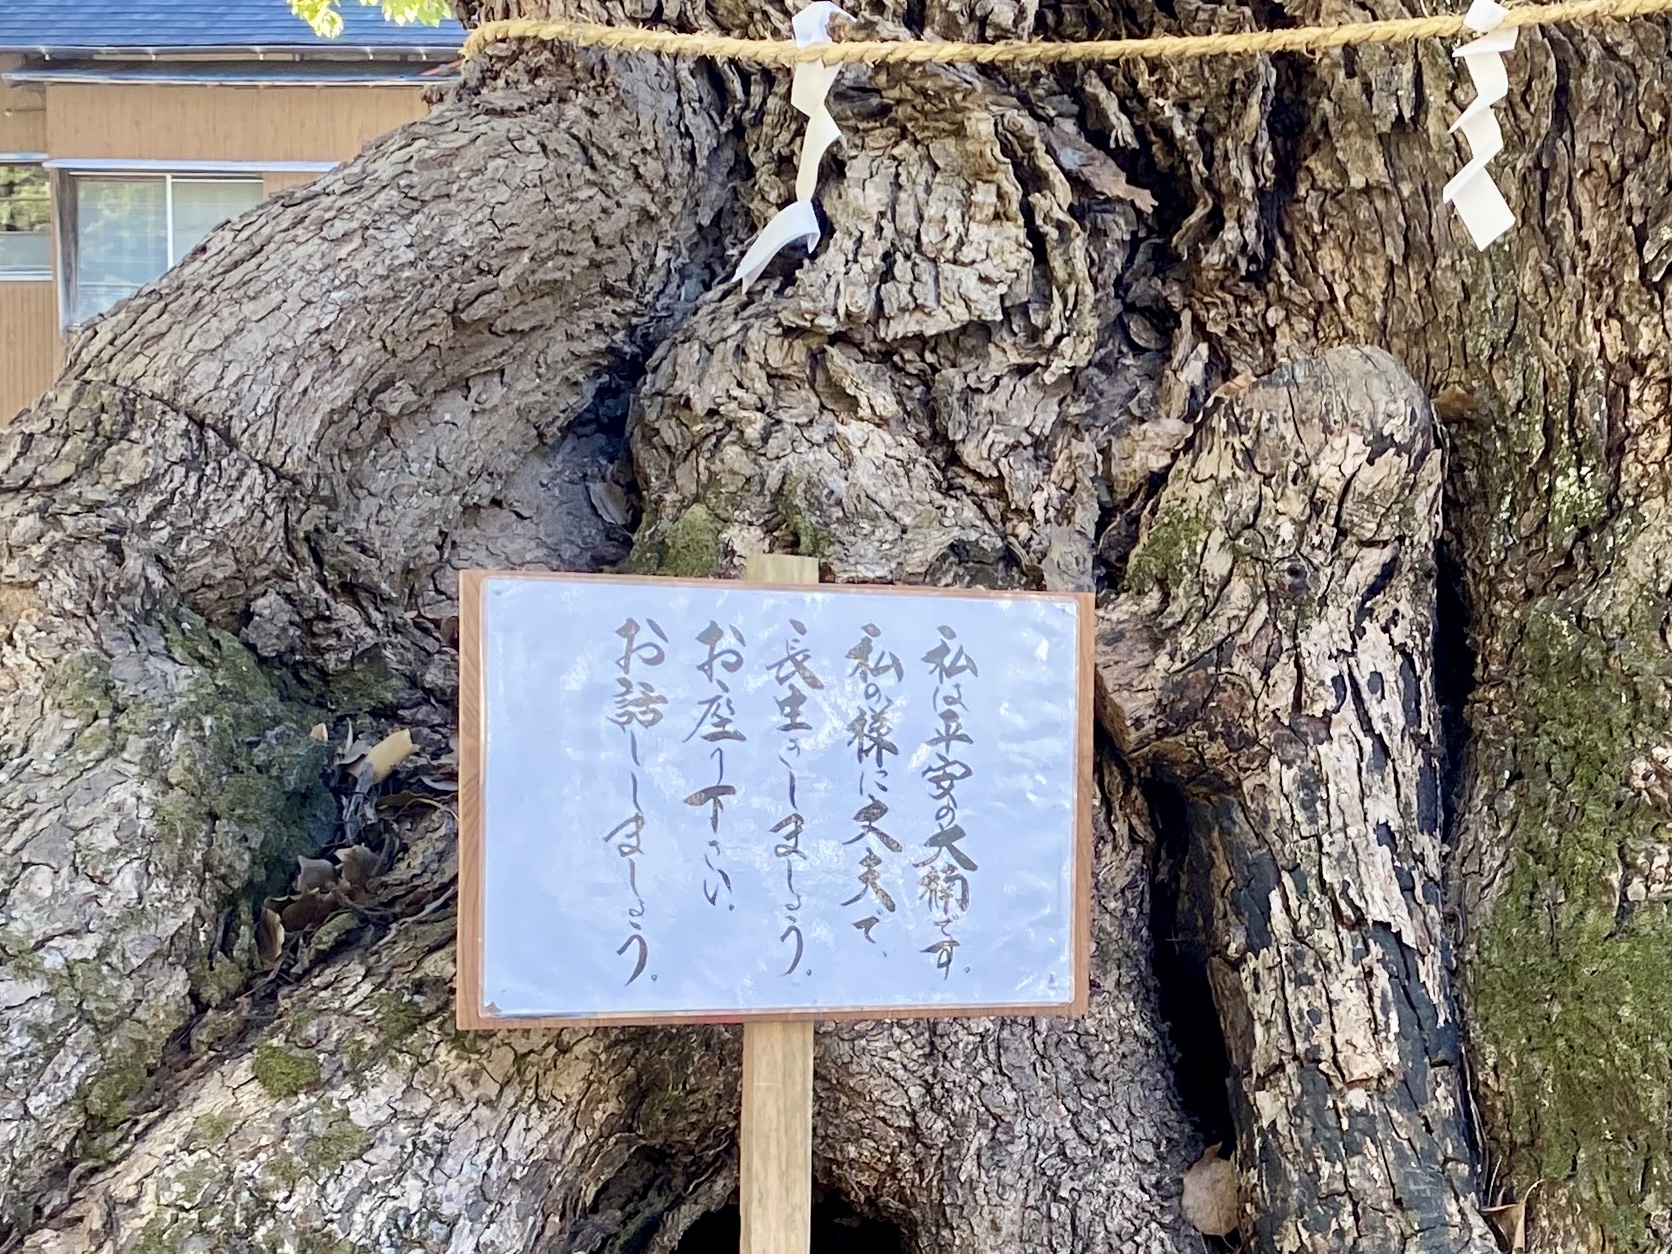 私は平安の大楠です。
私の様に丈夫で、
長生きしましょう。
お座り下さい。
お話ししましょう。